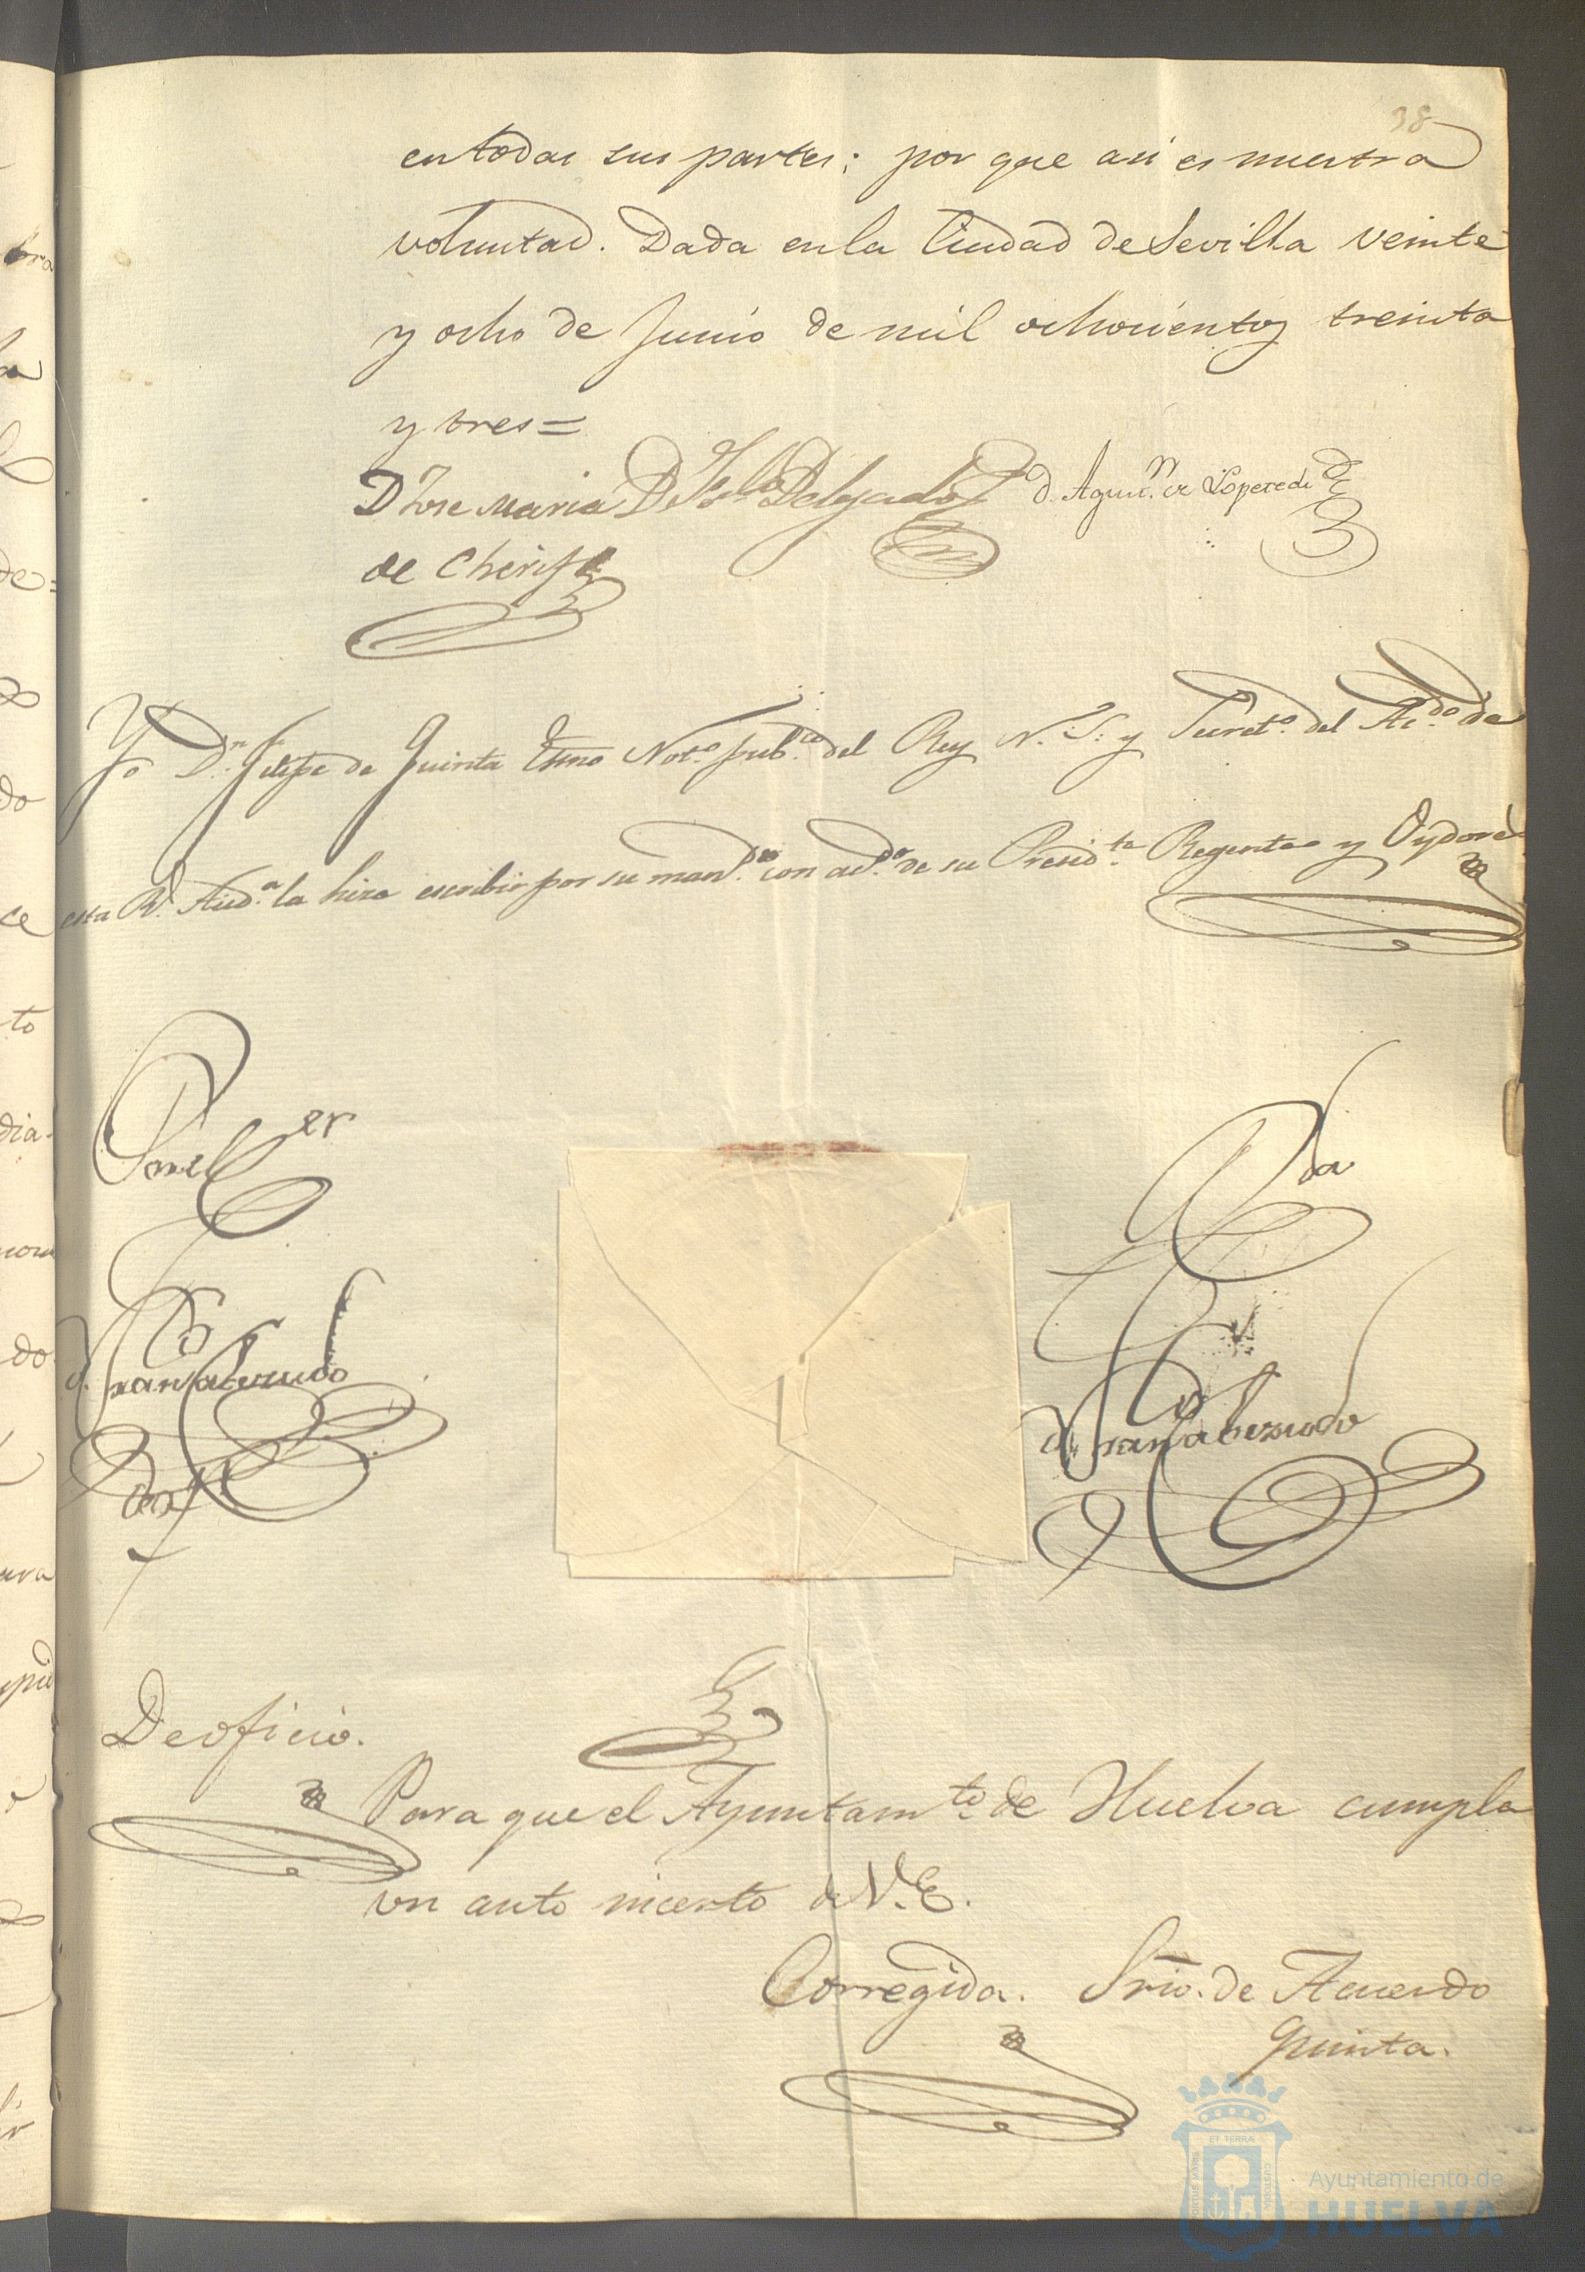 38
en todas sus partes; por que asi es nuestra
voluntad. Dada en la Ciudad de Sevilla veinte
y ocho de Junio de mil ochocientos treinta
y tres=
D Jose Maria
de Cherif
Delgado
D. Agus.n de
Yo D.n Felipe de Quinta Esno Not.o pub.co del Rey N. S. y Secret.o del Ac.do de
esta R.l Aud.a la hize escribir por su mand.do con acd.o de su Presid.te Regente y Oydores
er
da
d. Fran Cabezudo
d. Fran Cabezudo
De oficio.
Para que el Ayuntam.to de Huelva cumpla
un auto incerto de V.E.
Corregida. Srio. de Acuerdo
Quinta.
ET TERRÆ
PORTUS MARIS
CUSTODIA
Ayuntamiento de
HUELVA